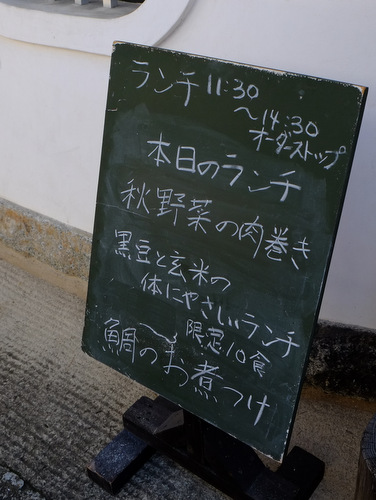 ランチ 11:30
〜14:30
オーダーストップ
本日のランチ
秋野菜の肉巻き
黒豆と玄米の
体にやさしいランチ
〜 限定10食
鯛のお煮つけ